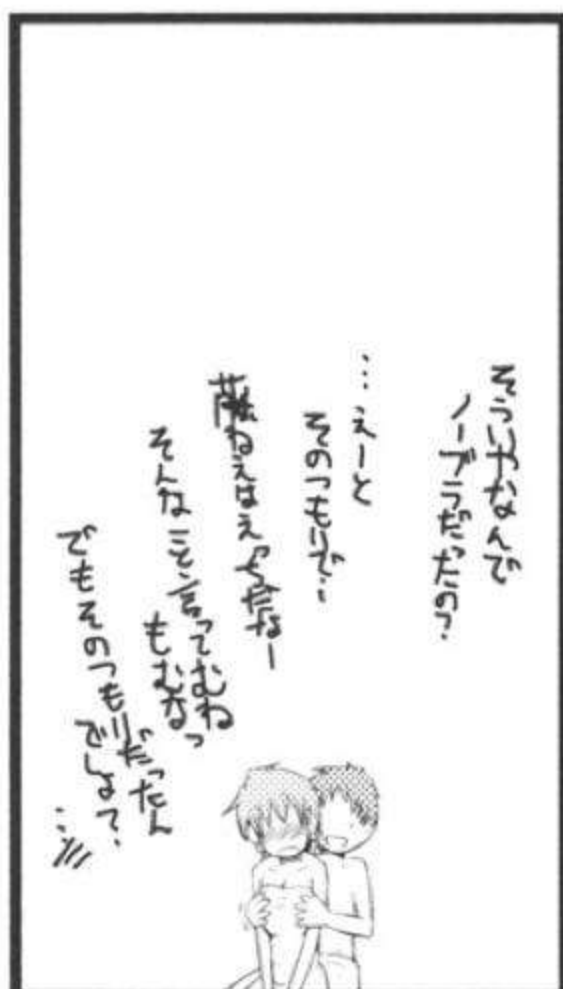 そういやなんで
ノーブラだったの?
…えーと
そのつもりで…
ねえはえっちだなー
そんなこと言ってむね
もむなっ
でもそのつもりだったん
でしょ?
…